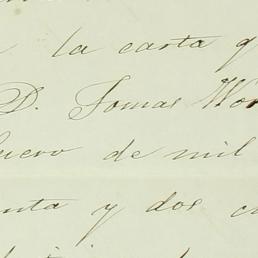 la carta q
D. Tomas Wo
uero de mil
nta y dos c